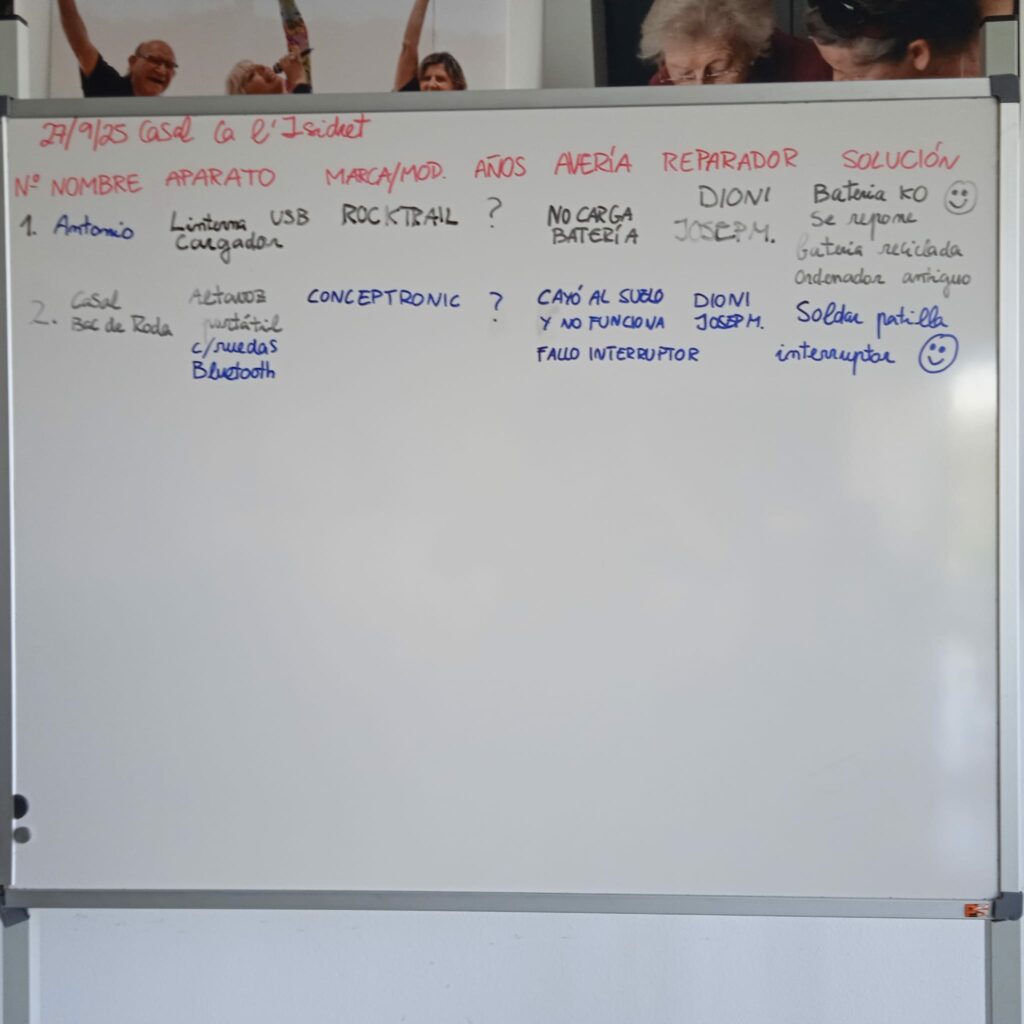 27/9/25 Casal Ca l'Isidret
Nº NOMBRE APARATO MARCA/MOD. AÑOS AVERÍA REPARADOR SOLUCIÓN
1. Antonio Linterna USB Cargador ROCKTRAIL ? NO CARGA BATERÍA DIONI JOSEP M. Bateria KO ☺
Se repone
bateria reciclada
Ordenador antiguo
2. Casal Bac de Roda Altavoz portátil CONCEPTRONIC ? CAYÓ AL SUELO Y NO FUNCIONA DIONI JOSEP M. Soldar patilla
c/ruedas FALLO INTERRUPTOR interruptor ☺
Bluetooth